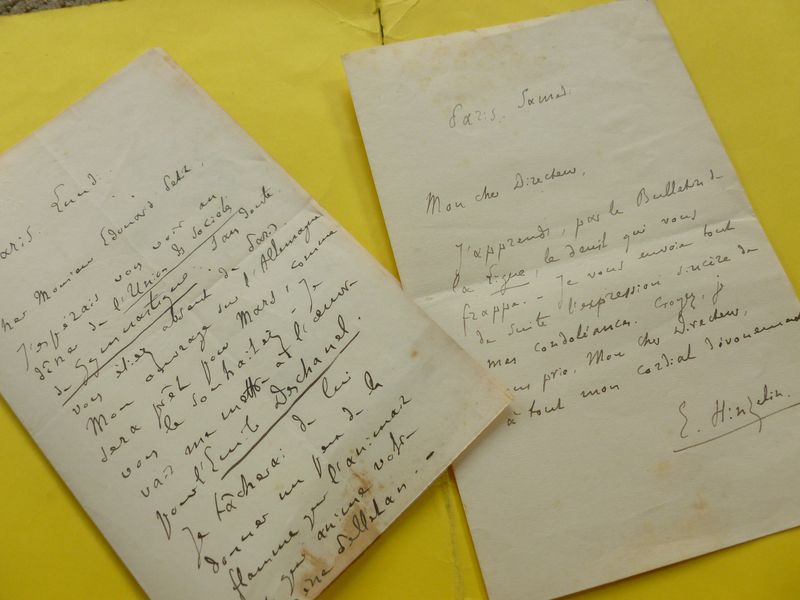 Paris. Lundi.
cher Monsieur Edouard Petit,
J'espérais vous voir au
dîner de l'Union des Sociétés
de Gymnastique. Sans doute
vous étiez absent de Paris.
Mon ouvrage sur l'Allemagne
sera prêt pour Mars, comme
vous le souhaitez. - Je
vais me mettre à l'œuvre
pour l'Emile Deschanel.
Je tâcherai de lui
donner un peu de la
flamme qui l'animait
qui anime votre
Pelletan. -
Paris. Samedi.
Mon cher Directeur,
J'apprends, par le Bulletin de
la Ligue, le deuil qui vous
frappe. - Je vous envoie tout
de suite l'expression sincère de
mes condoléances. Croyez, je
vous prie, Mon cher Directeur,
à tout mon cordial dévouement
E. Hinzelin.